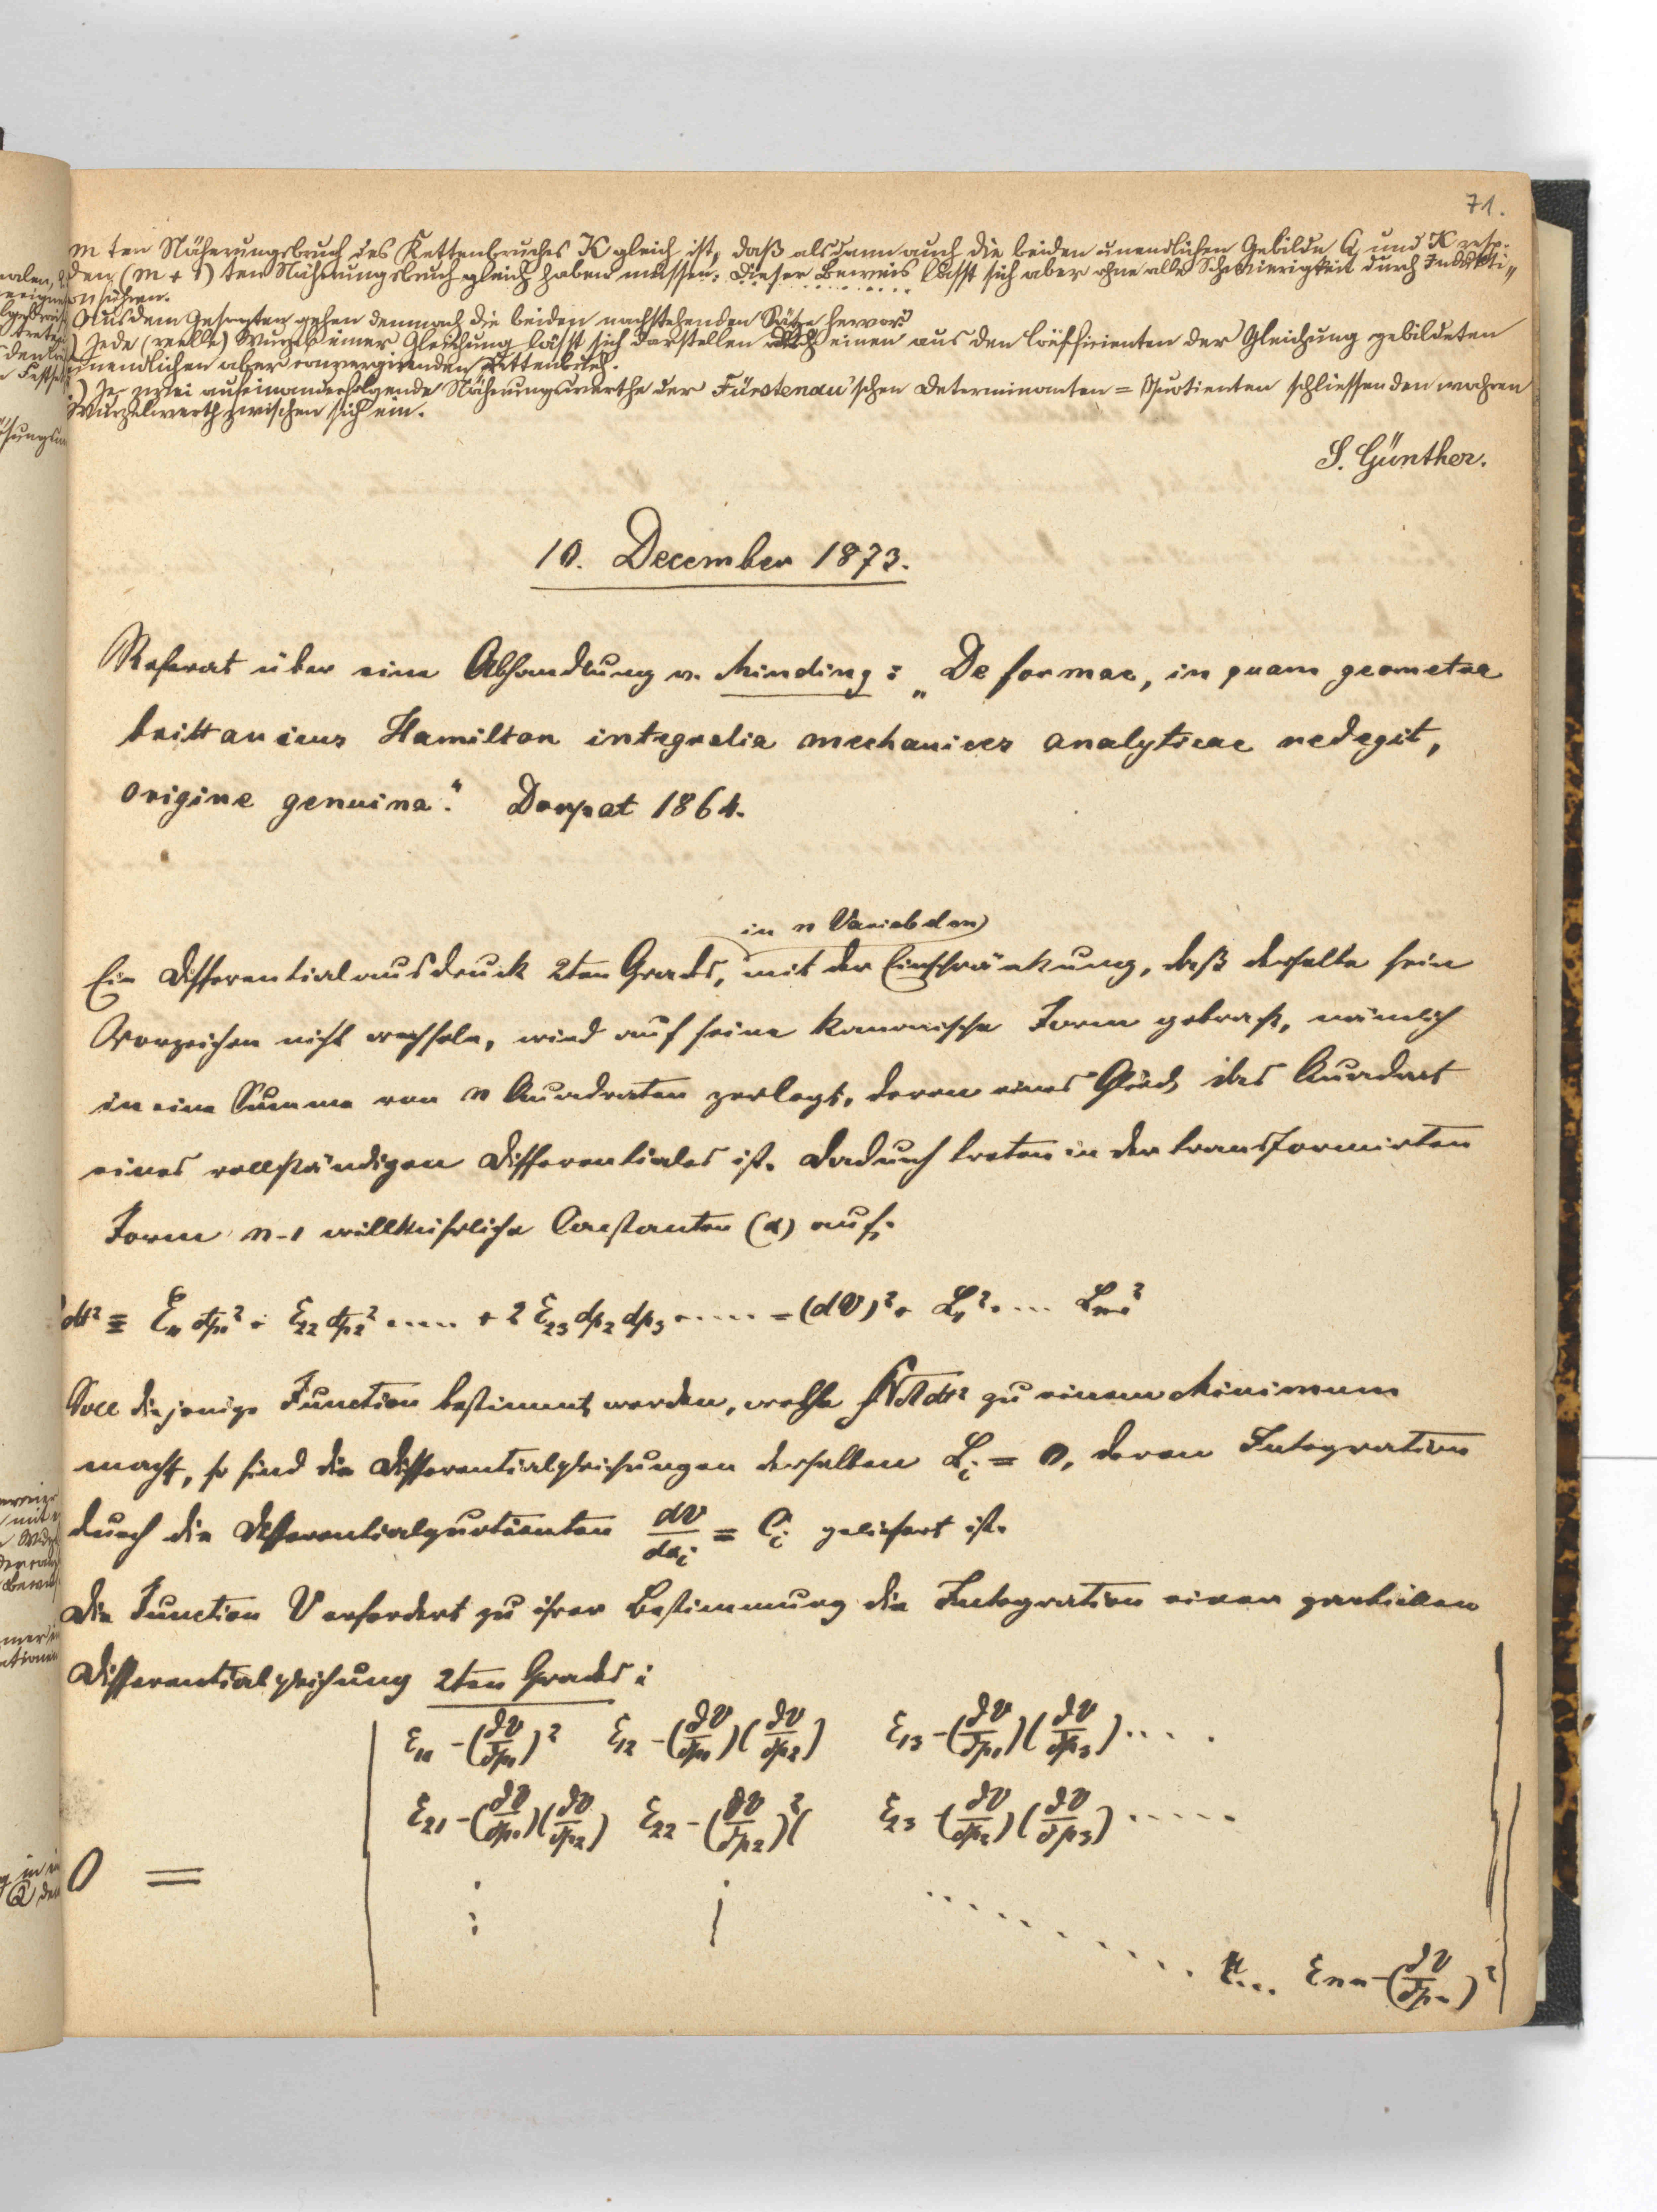 71.
m ten Näherungsbruch des Kettenbruches K gleich ist, daß alsdann auch die beiden unendlichen Gebilde Q und K resp.
den (m + 1) ten Näherungsbruch gleich haben müssen. Dieser Beweis lässt sich aber ohne alle Schwierigkeit durch Indukti„
on führen.
Aus dem Gesagten gehen demnach die beiden nachstehenden Sätze hervor:
) Jede (reelle) Wurzel einer Gleichung lässt sich darstellen durch einen aus den Coëfficienten der Gleichung gebildeten
unendlichen aber convergirenden Kettenbruch.
) Je zwei aufeinanderfolgende Näherungswerthe der Fürstenau'schen Determinanten = Quotienten schliessen den wahren
Wurzelwerth zwischen sich ein.
S. Günther.
10. December 1873.
Referat über eine Abhandlung v. Minding: „De formae, in quam geometra
brittanicus Hamilton integralia mechanices analyticae redegit,
origine genuina". Dorpat 1864.
in n Variabelen
Ein Differentialausdruck 2ten Grads, mit der Einschränkung, daß derselbe sein
Vorzeichen nicht wechsele, wird auf seine kanonische Form gebracht, nämlich
in eine Summe von n Quadraten zerlegt, deren eines Glied das Quadrat
eines vollständigen Differentiales ist. Dadurch treten in der transformirten
Form n-1 willkürliche Constanten (α) auf.
dt² = Ɛ₁₁ dp₁² + Ɛ₂₂ dp₂² .... + 2 Ɛ₂₃ dp₂ dp₃ ..... = (dV)² + L₁² + ... Lₙ₋₁²
Soll diejenige Function bestimmt werden, welche ∫√ dt² zu einem Minimum
macht, so sind die Differentialgleichungen derselben Lᵢ = 0, deren Integration
durch die Differentialquotienten dV/dαᵢ = Cᵢ geliefert ist.
Die Function V erfordert zu ihrer Bestimmung die Integration einer partiellen
Differentialgleichung 2ten Grades:
Ɛ₁₁ - (∂V/∂p₁)² Ɛ₁₂ - (∂V/∂p₁)(∂V/∂p₂) Ɛ₁₃ - (∂V/∂p₁)(∂V/∂p₃) ....
Ɛ₂₁ - (∂V/∂p₁)(∂V/∂p₂) Ɛ₂₂ - (∂V/∂p₂)² Ɛ₂₃ - (∂V/∂p₂)(∂V/∂p₃) .....
0 =
... Ɛₙₙ - (∂V/∂pₙ)²